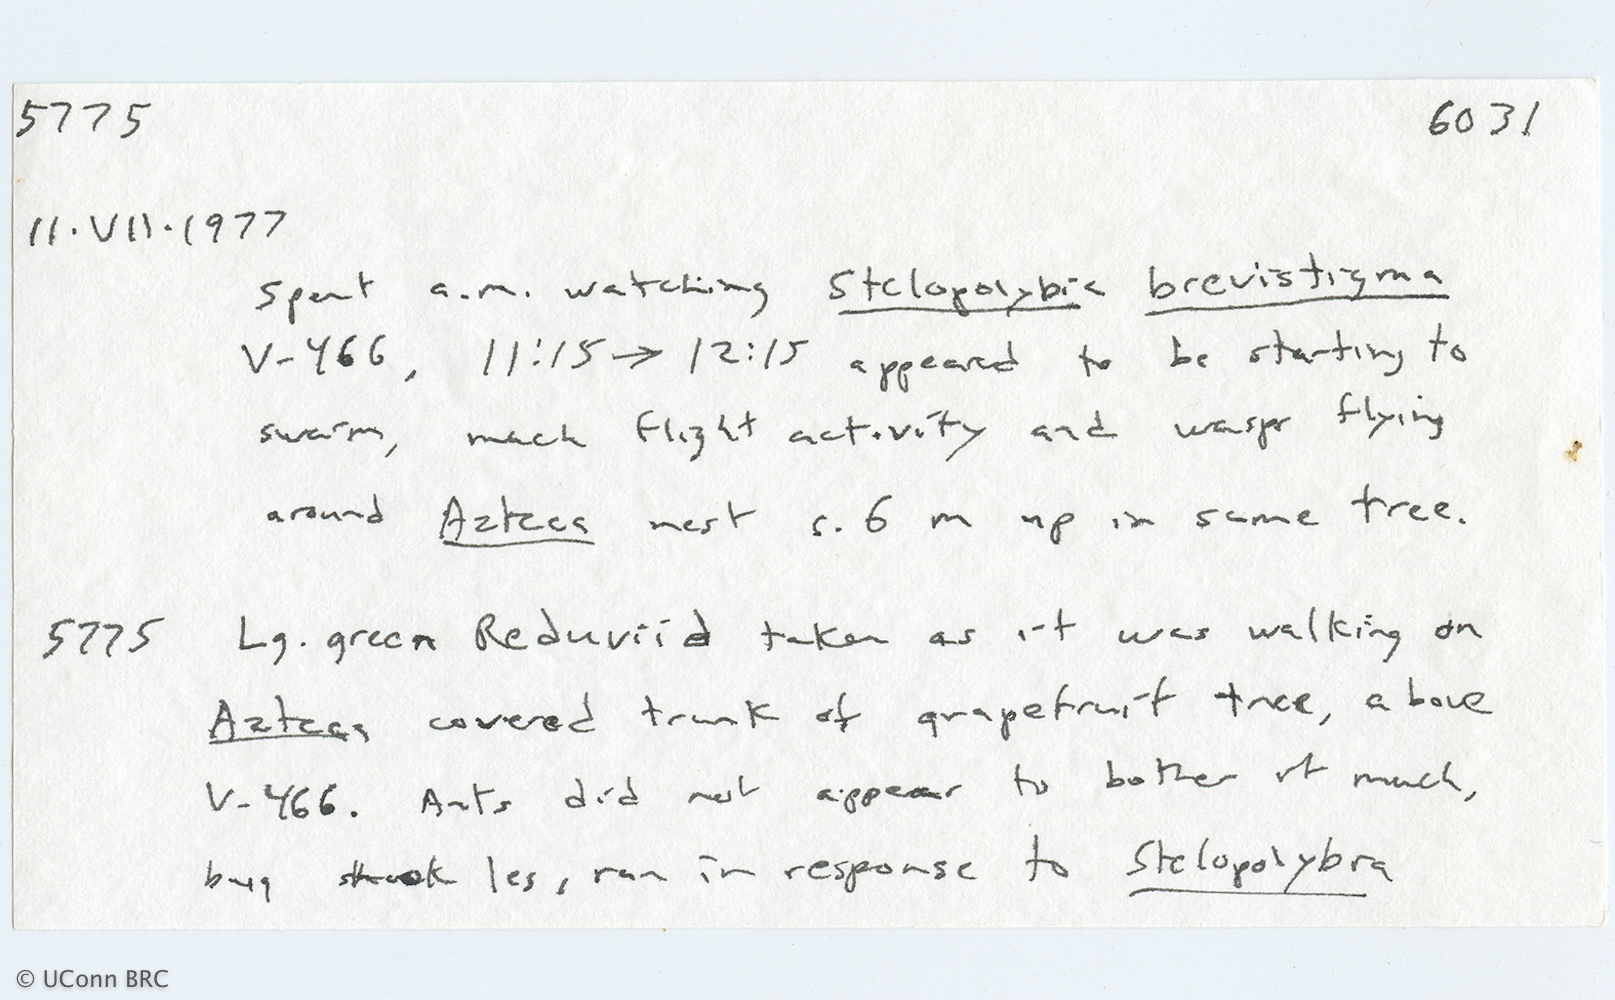 5775 6031
11·VII·1977
spent a.m. watching Stelopolybia brevistigma
V-466, 11:15 → 12:15 appeared to be starting to
swarm, much flight activity and wasps flying
around Azteca nest c. 6 m up in same tree.
5775 Lg. green Reduviid taken as it was walking on
Azteca covered trunk of grapefruit tree, above
V-466. Ants did not appear to bother it much,
bug shook leg, ran in response to Stelopolybia
© UConn BRC